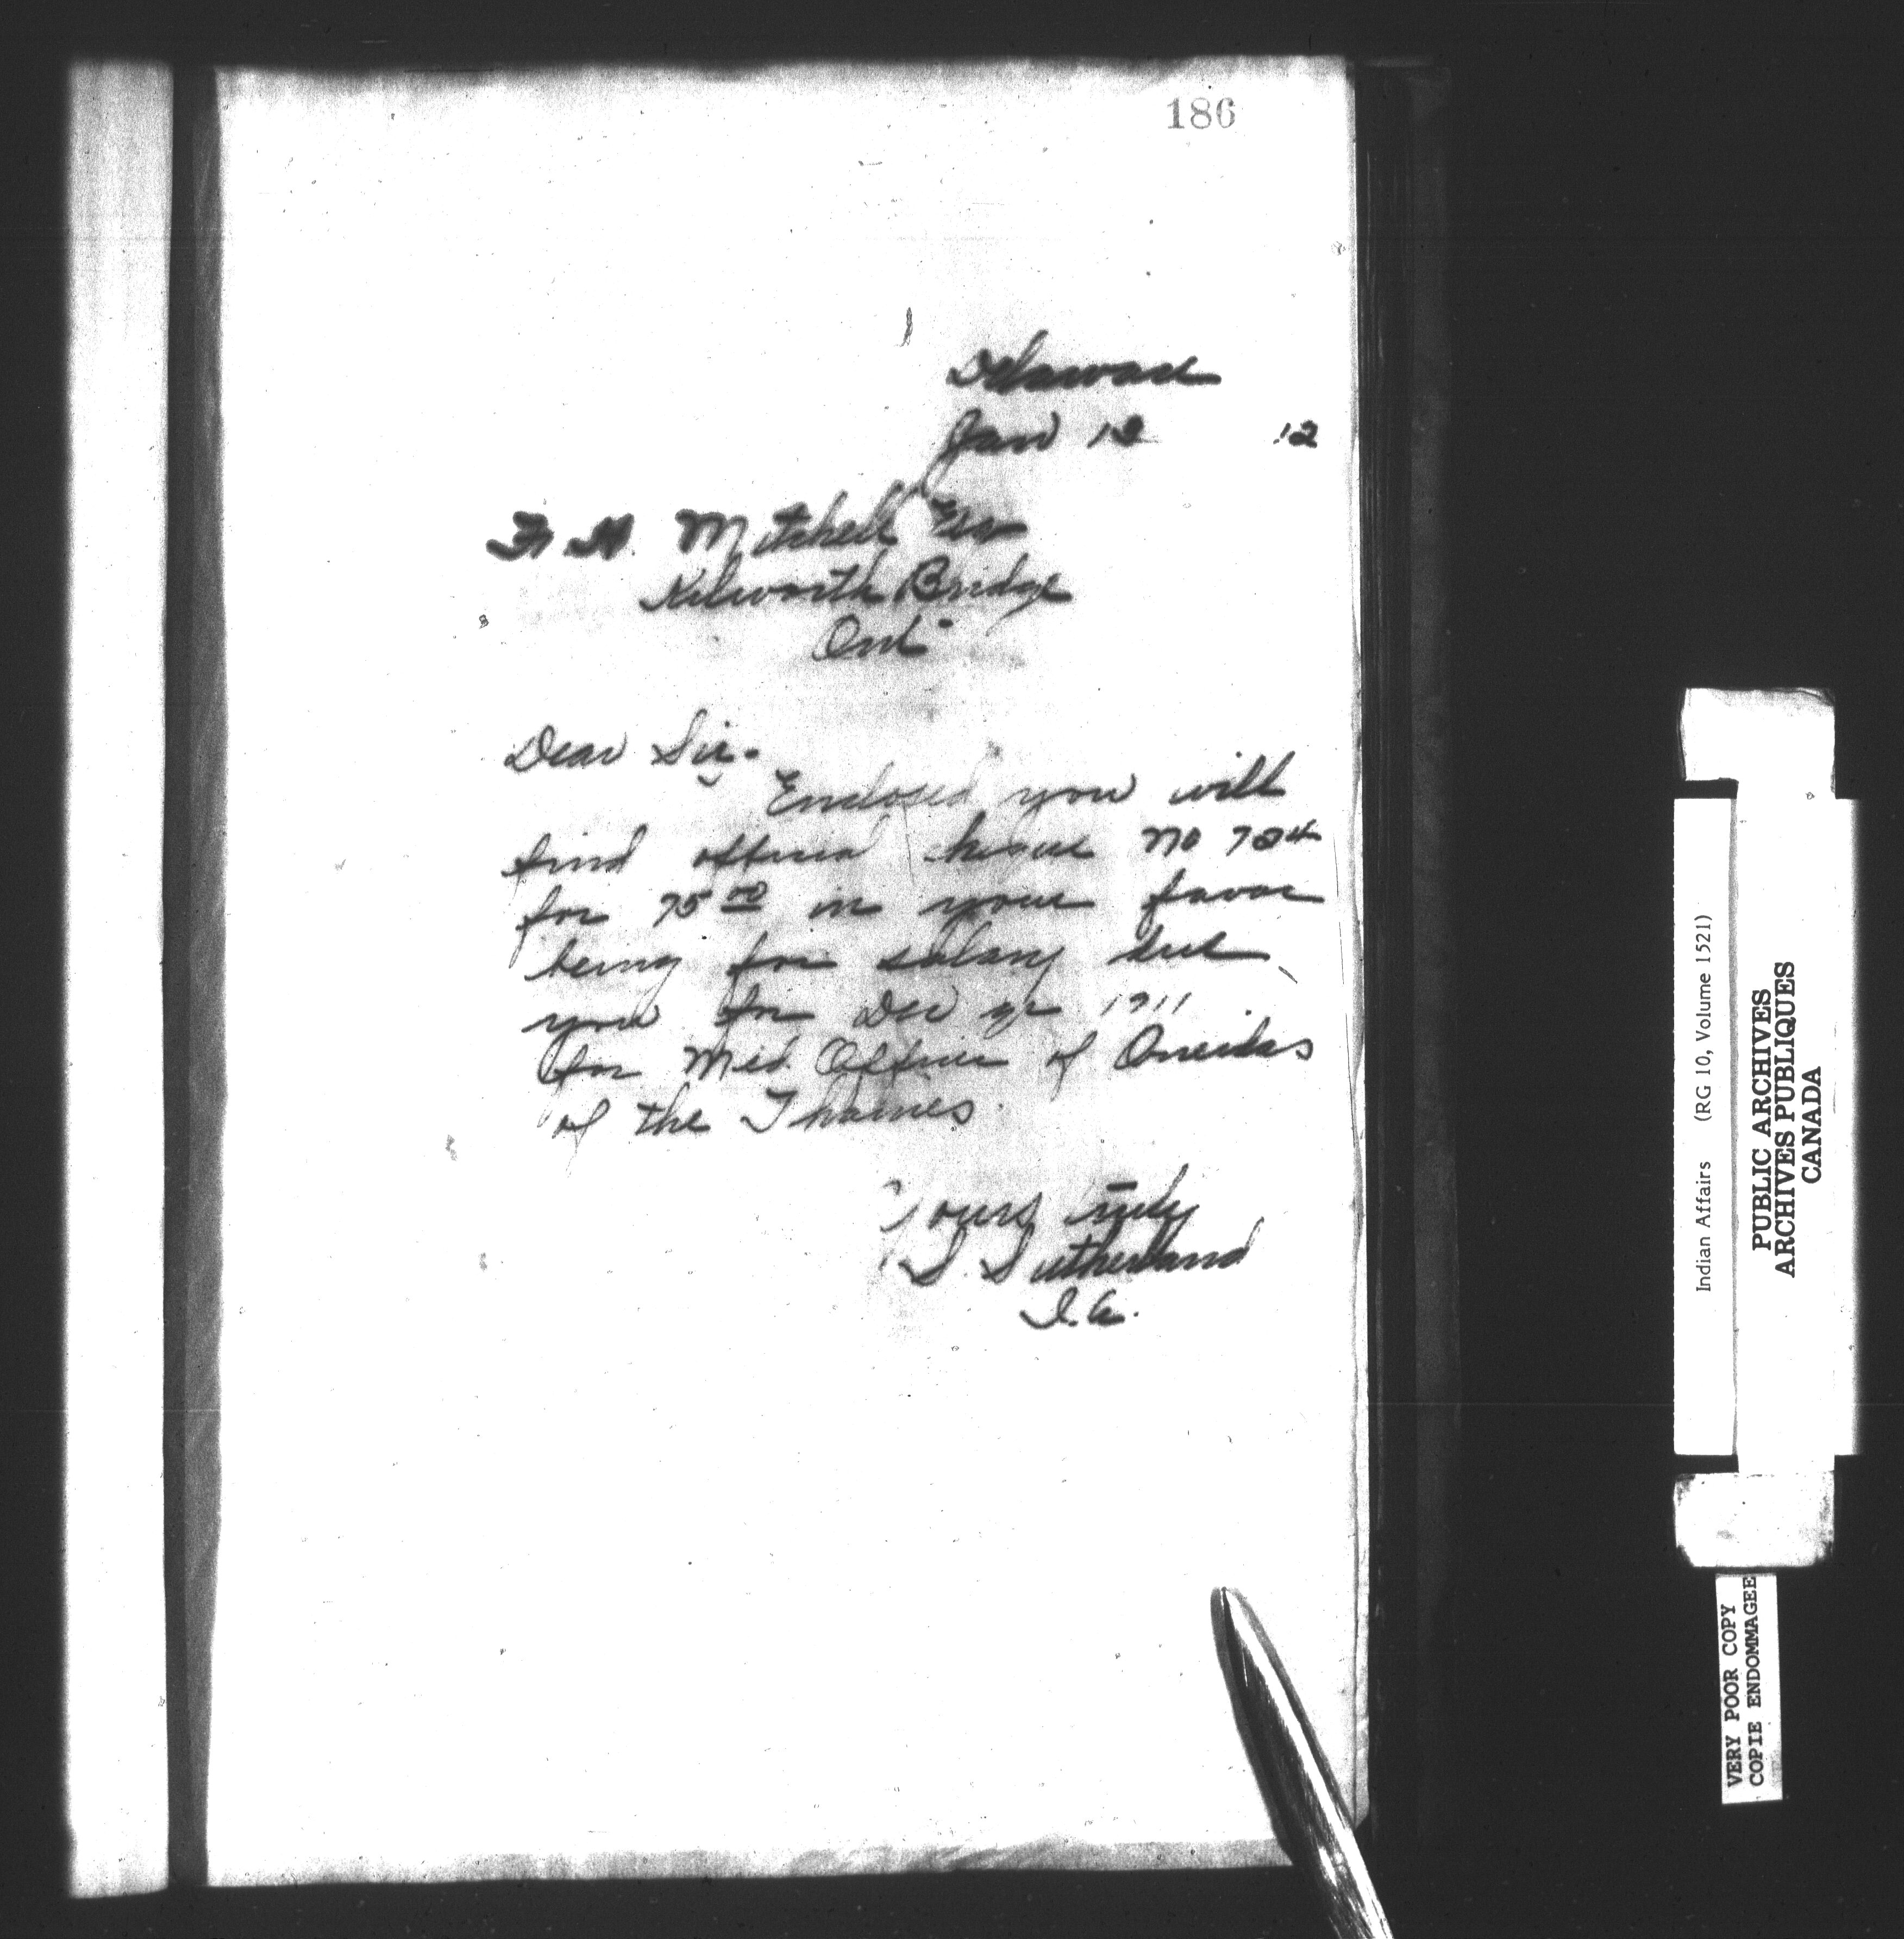 186
Delaware
Jan 12 12
F. H. Mitchell Esq
Kilworth Bridge
Ont
Dear Sir.
Enclosed you will
find official cheque No
for 75 00 in your favor
being for salary due
you for Dec qr 1911
for Med. Officer of Oneidas
of the Thames.
Yours truly
S. Sutherland
I. A.
Indian Affairs (RG 10, Volume 1521)
PUBLIC ARCHIVES
ARCHIVES PUBLIQUES
CANADA
VERY POOR COPY
COPIE ENDOMMAGEE